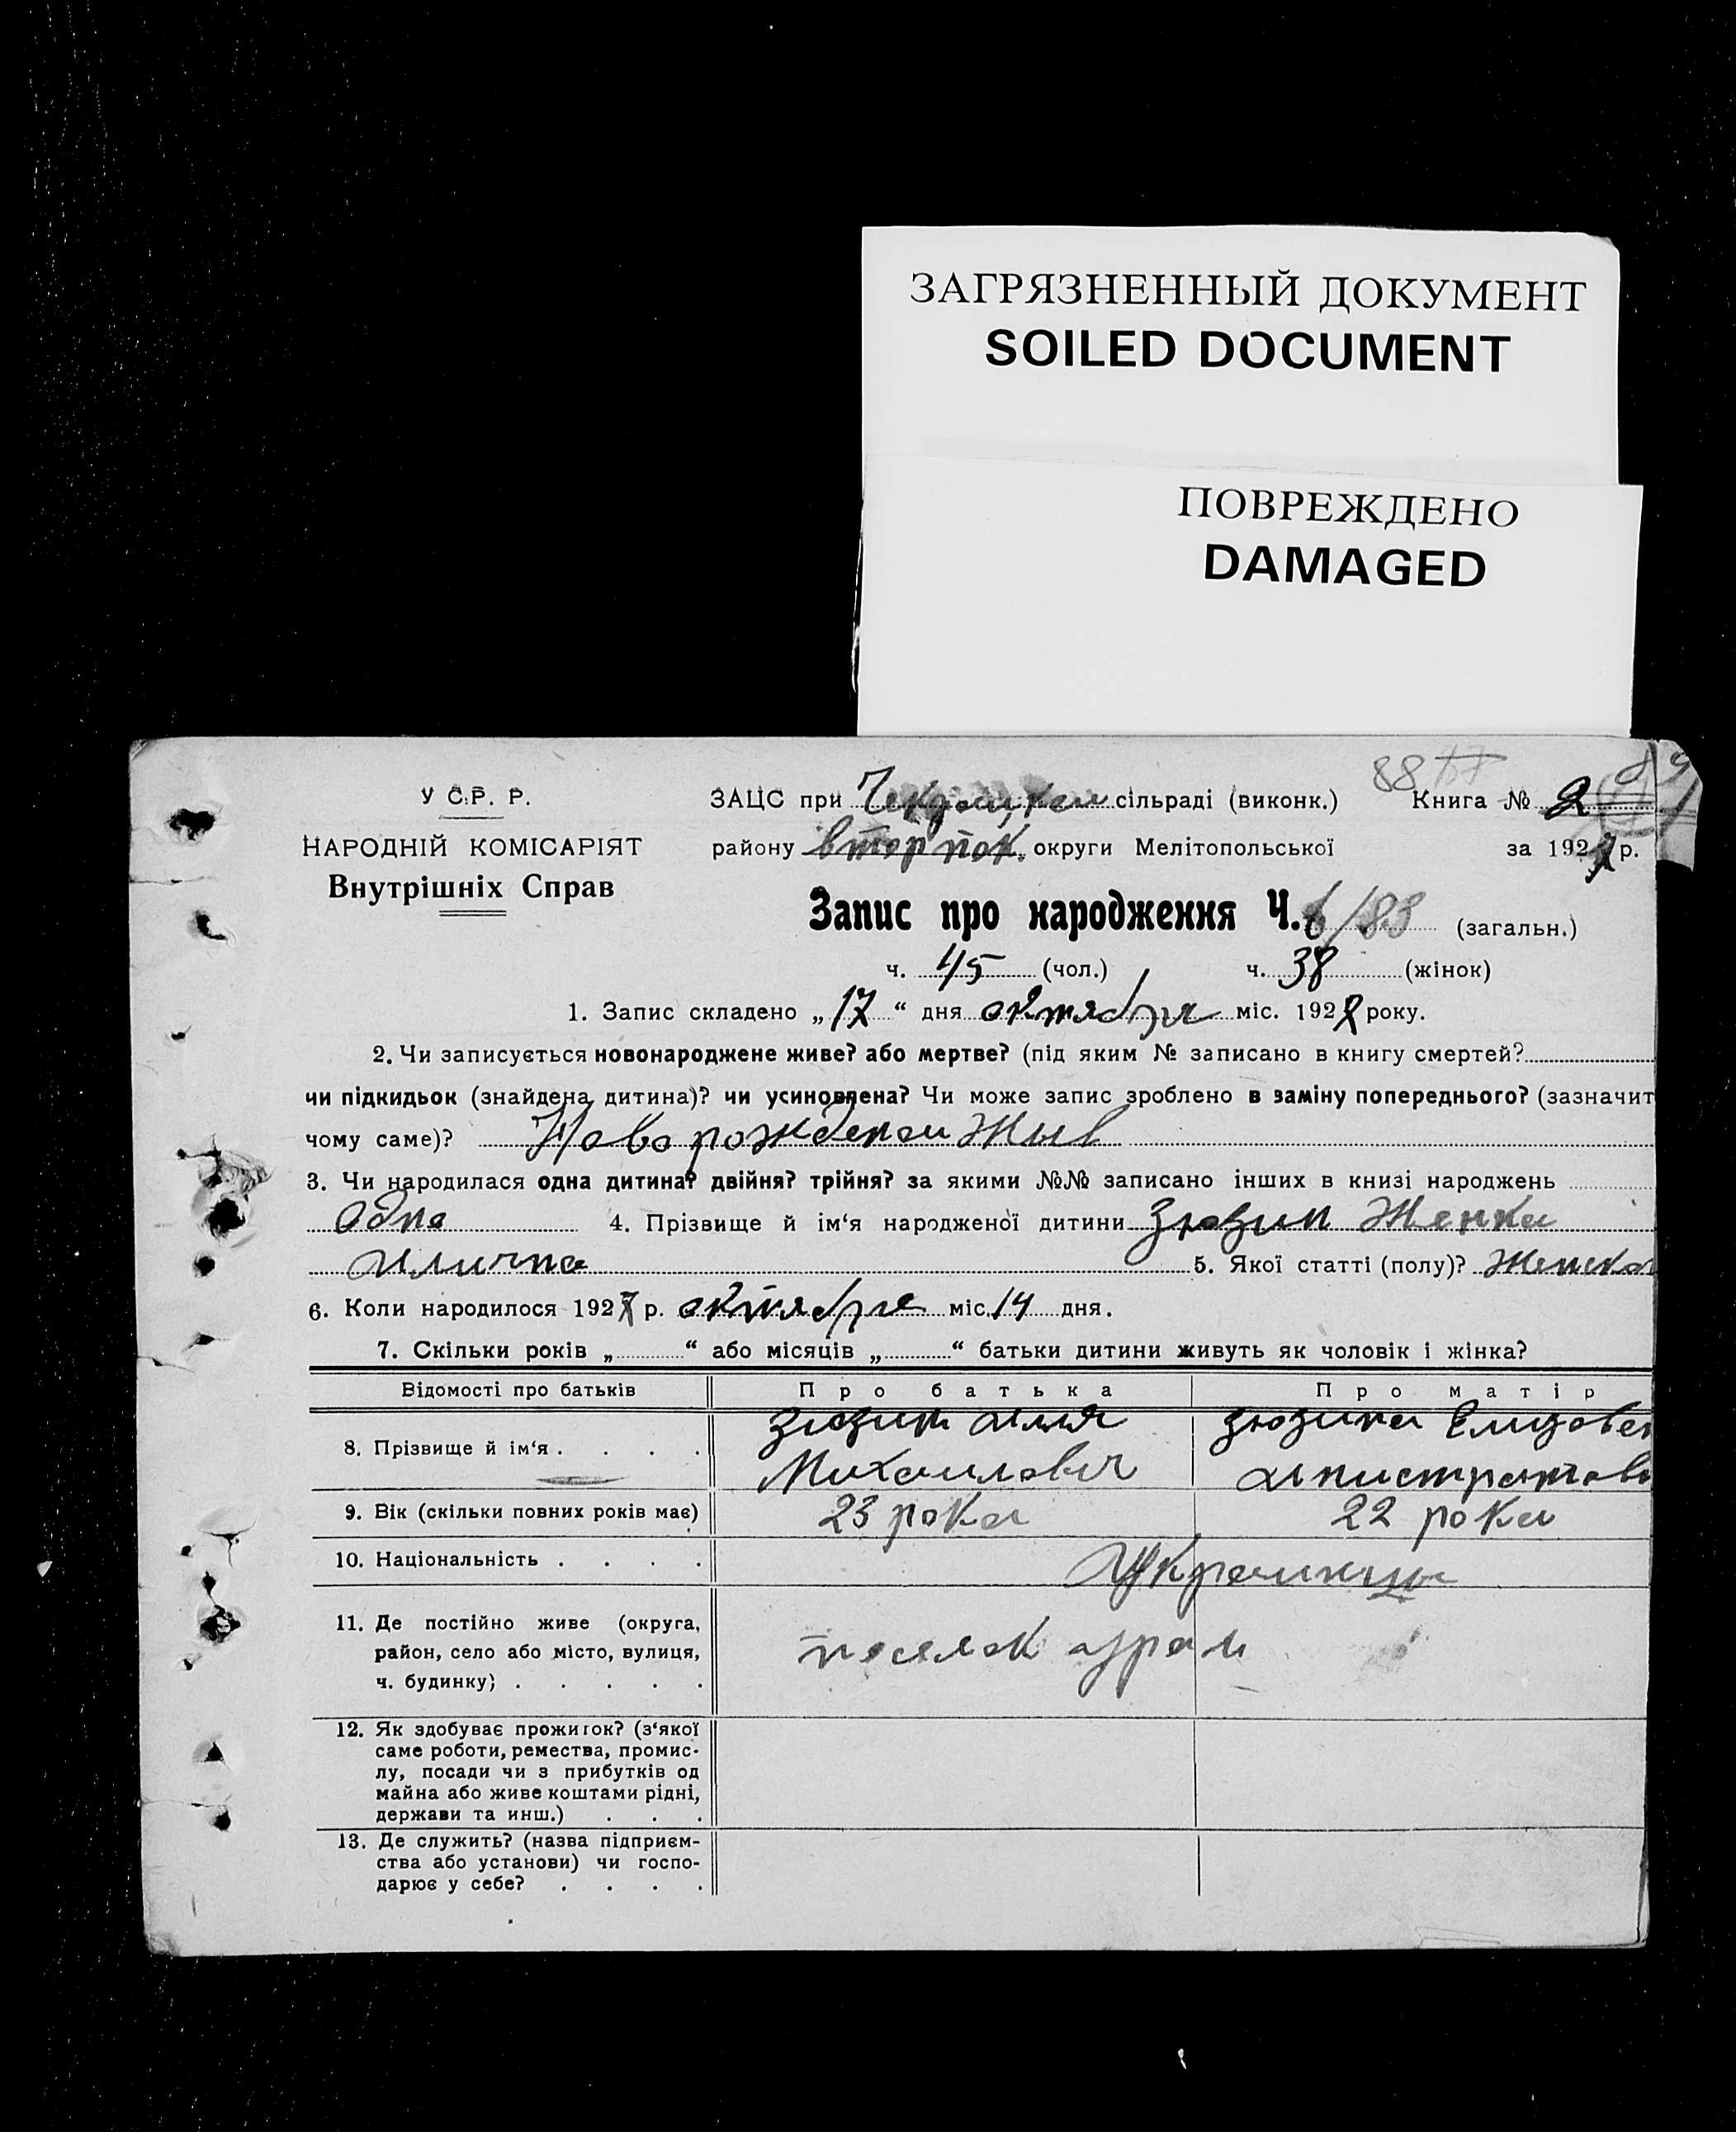 ЗАГРЯЗНЕННЫЙ ДОКУМЕНТ
SOILED DOCUMENT
ПОВРЕЖДЕНО
DAMAGED
88
У С.Р.Р.
ЗАЦС при сільраді (виконк.) Книга № 2
НАРОДНІЙ КОМІСАРІЯТ
району округи Мелітопольської за 1927 р.
Внутрішніх Справ
Запис про народження Ч. /83 (загальн.)
ч. 45 (чол.) ч. 38 (жінок)
1. Запис складено „17“ дня октября міс. 1927 року.
2. Чи записується новонароджене живе? або мертве? (під яким № записано в книгу смертей?
чи підкидьок (знайдена дитина)? чи усиновлена? Чи може запис зроблено в заміну попереднього? (зазначит
чому саме)? Новорожденои Жыв
3. Чи народилася одна дитина? двійня? трійня? за якими №№ записано інших в книзі народжень
одна 4. Прізвище й ім‘я народженої дитини Зюзин Женка
Илична 5. Якої статті (полу)? Женской
6. Коли народилося 1927 р. октября міс. 14 дня.
7. Скільки років „ “ або місяців „ “ батьки дитини живуть як чоловік і жінка?
Відомості про батьків Про батька Про матір
8. Прізвище й ім‘я . . . . Зюзин Илля Зюзина Елизовет
Михаилович
9. Вік (скільки повних років має) 23 рока 22 рока
10. Національність . . . . Украинцы
11. Де постійно живе (округа,
район, село або місто, вулиця,
ч. будинку; . . . . . поселок
12. Як здобуває прожиток? (з‘якої
саме роботи, ремества, промис-
лу, посади чи з прибутків од
майна або живе коштами рідні,
держави та инш.) . . .
13. Де служить? (назва підприєм-
ства або установи) чи госпо-
дарює у себе? . . . .